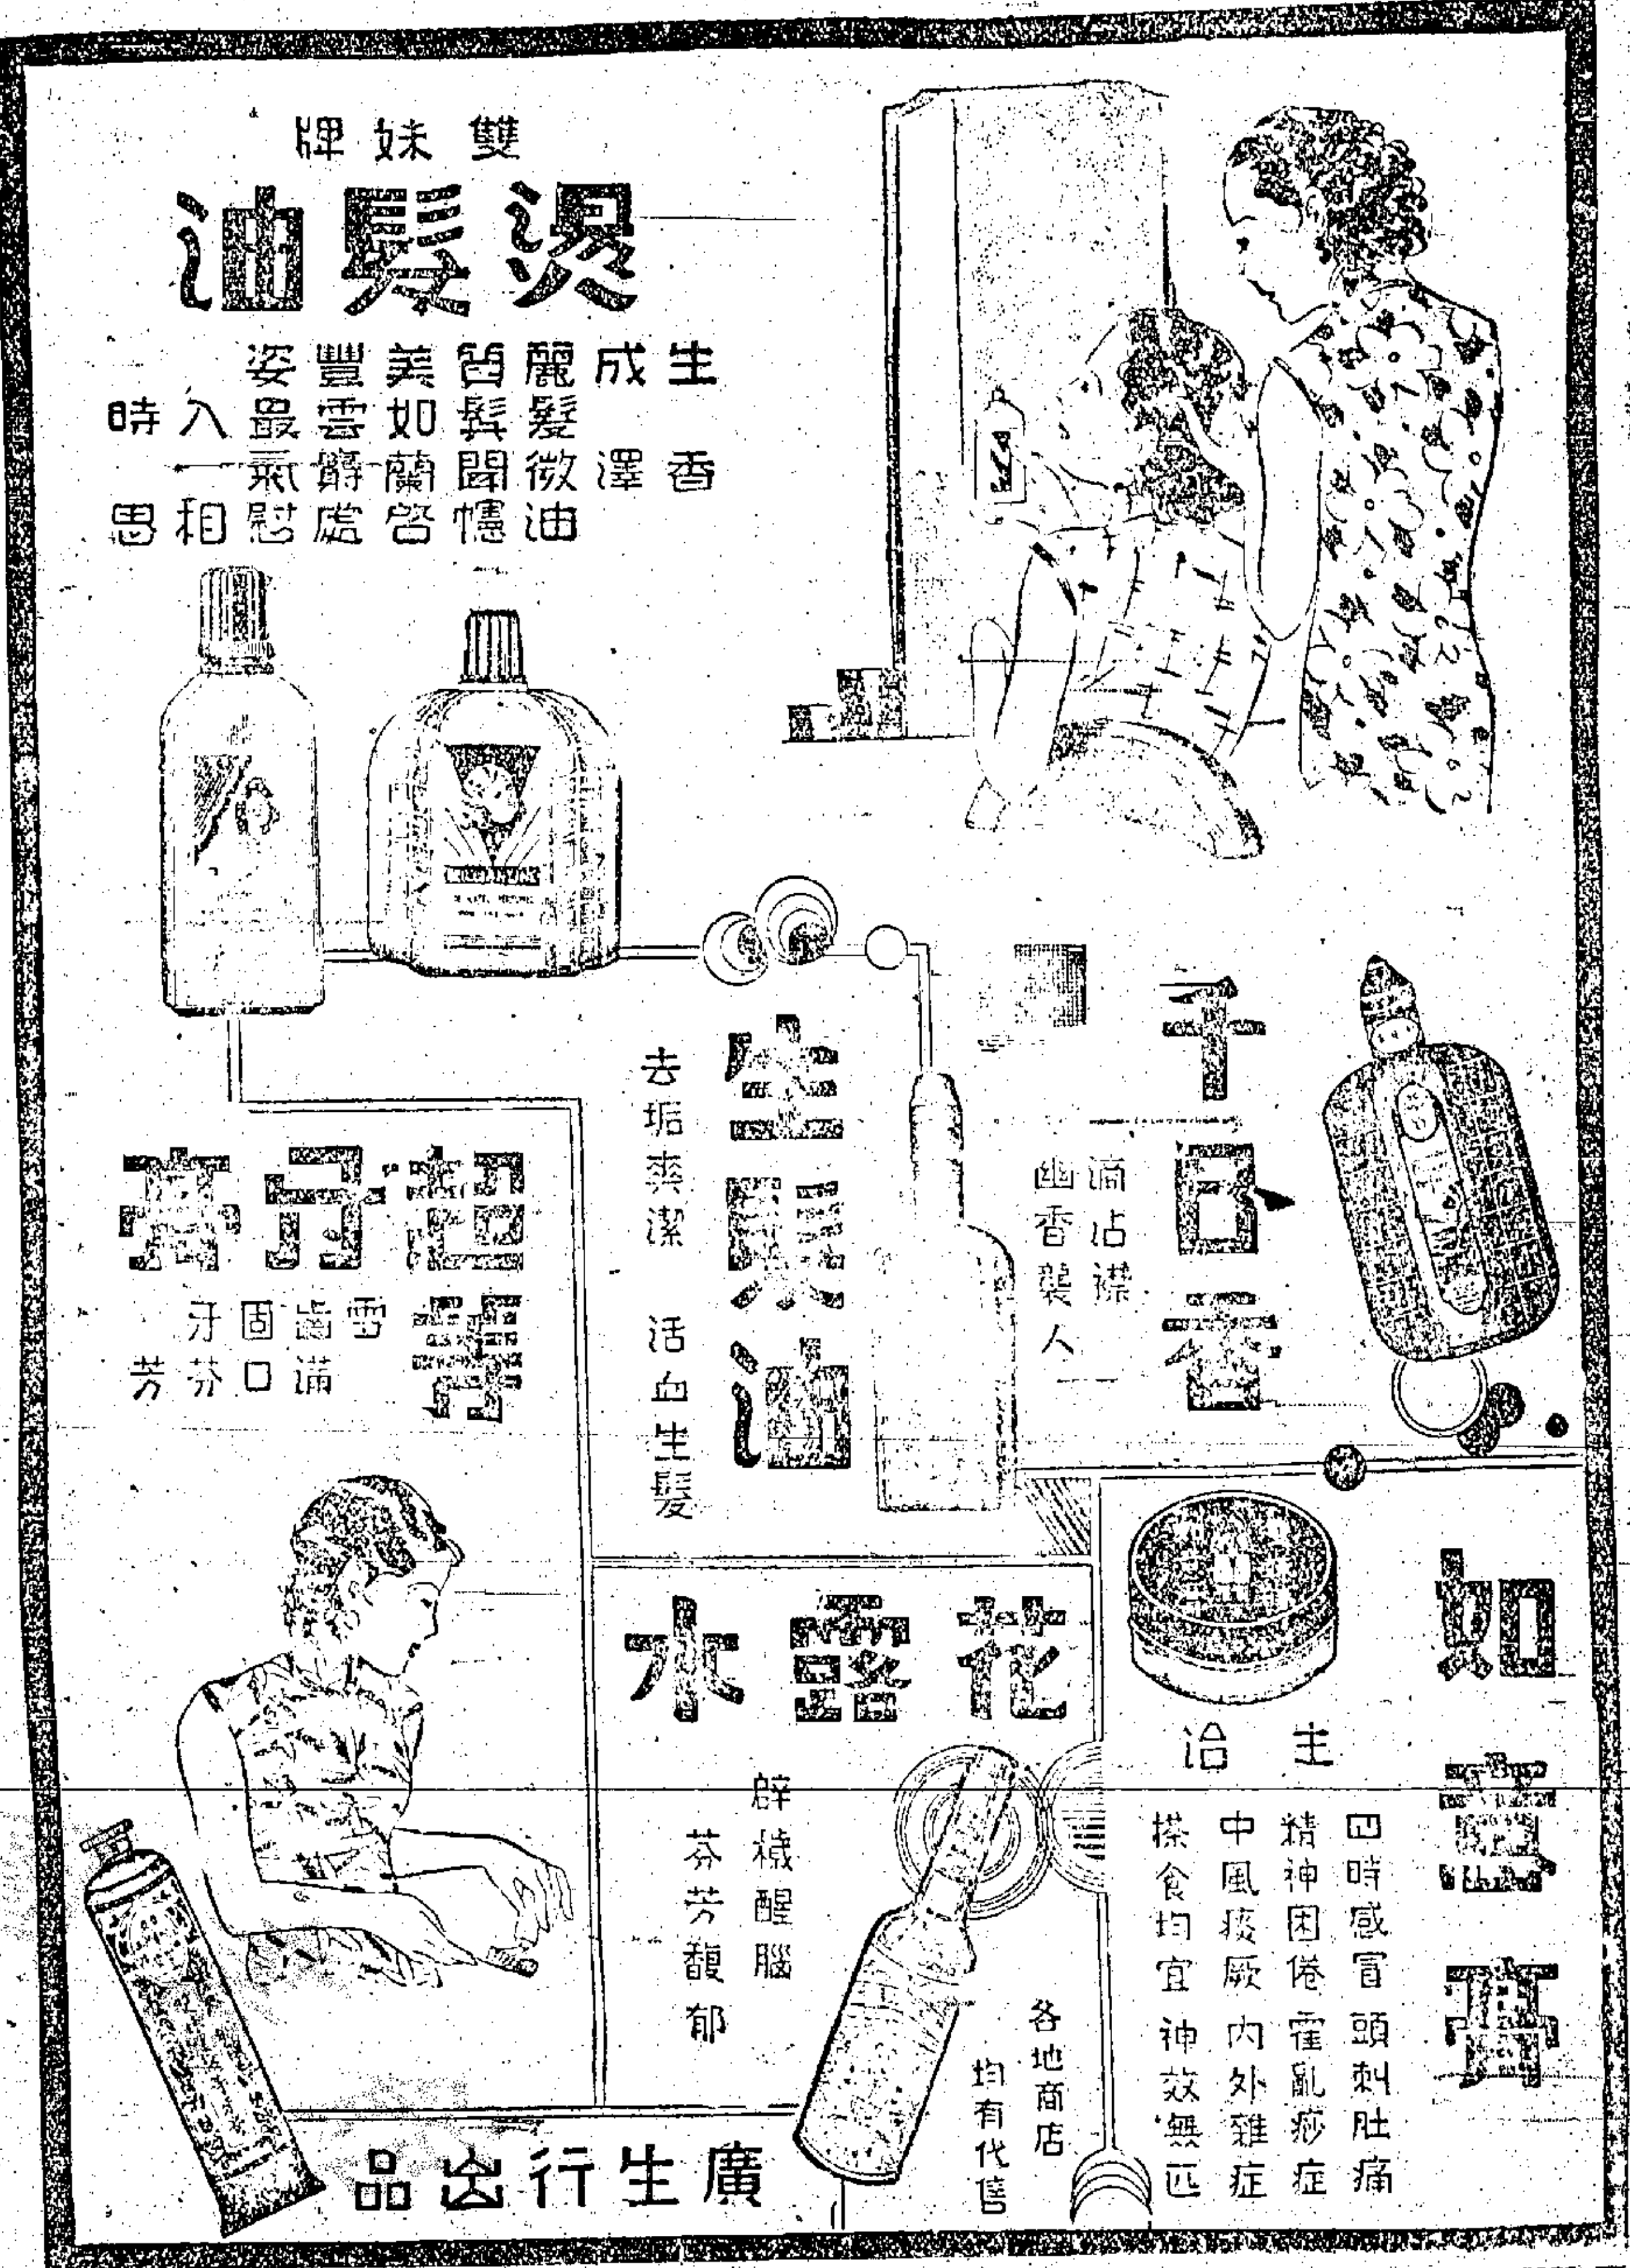 雙妹牌
燙髮油
生成麗質美豐姿
髮髯如雲最入時
香澤微聞蘭麝氣
油幰啓處慰相思
千日香
滴沾襟
幽香襲人
生髮油
去垢爽潔 活血生髮
超等牙膏
雪齒固牙
滿口芬芳
花露水
辟穢醒腦
芬芳馥郁
各地商店
均有代售
如意膏
主治
四時感冒 頭刺肚痛
精神困倦 霍亂痧症
中風痰厥 內外雜症
搽食均宜 神效無匹
廣生行出品